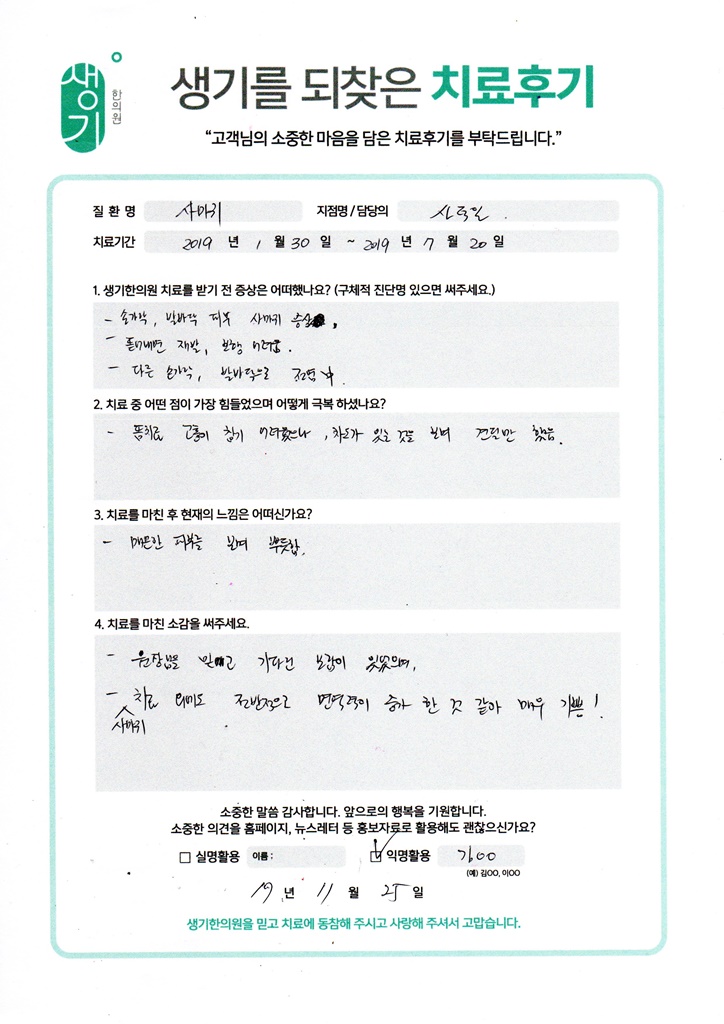 생기
한의원
생기를 되찾은 치료후기
“고객님의 소중한 마음을 담은 치료후기를 부탁드립니다.”
질 환 명 사마귀 지점명 / 담당의
치료기간 2019 년 1 월 30 일 ~ 2019 년 7 월 20 일
1. 생기한의원 치료를 받기 전 증상은 어떠했나요? (구체적 진단명 있으면 써주세요.)
- 손가락, 발바닥 피부 사마귀 증상,
- 재발, 보행 어려움.
- 다른 손가락, 발바닥으로 전염
2. 치료 중 어떤 점이 가장 힘들었으며 어떻게 극복 하셨나요?
- 뜸치료 고통이 참기 어려웠으나, 차도가 있는 것을 보며 견딜만 했음.
3. 치료를 마친 후 현재의 느낌은 어떠신가요?
- 매끈한 피부를 보며 뿌듯함.
4. 치료를 마친 소감을 써주세요.
- 원장님을 믿고 기다린 보람이 있었으며,
- 사마귀 치료 외에도 전반적으로 면역력이 증가 한 것 같아 매우 기쁨!
소중한 말씀 감사합니다. 앞으로의 행복을 기원합니다.
소중한 의견을 홈페이지, 뉴스레터 등 홍보자료로 활용해도 괜찮으신가요?
□ 실명활용 이름 : ☑ 익명활용
(예) 김OO, 이OO
19 년 11 월 25 일
생기한의원을 믿고 치료에 동참해 주시고 사랑해 주셔서 고맙습니다.